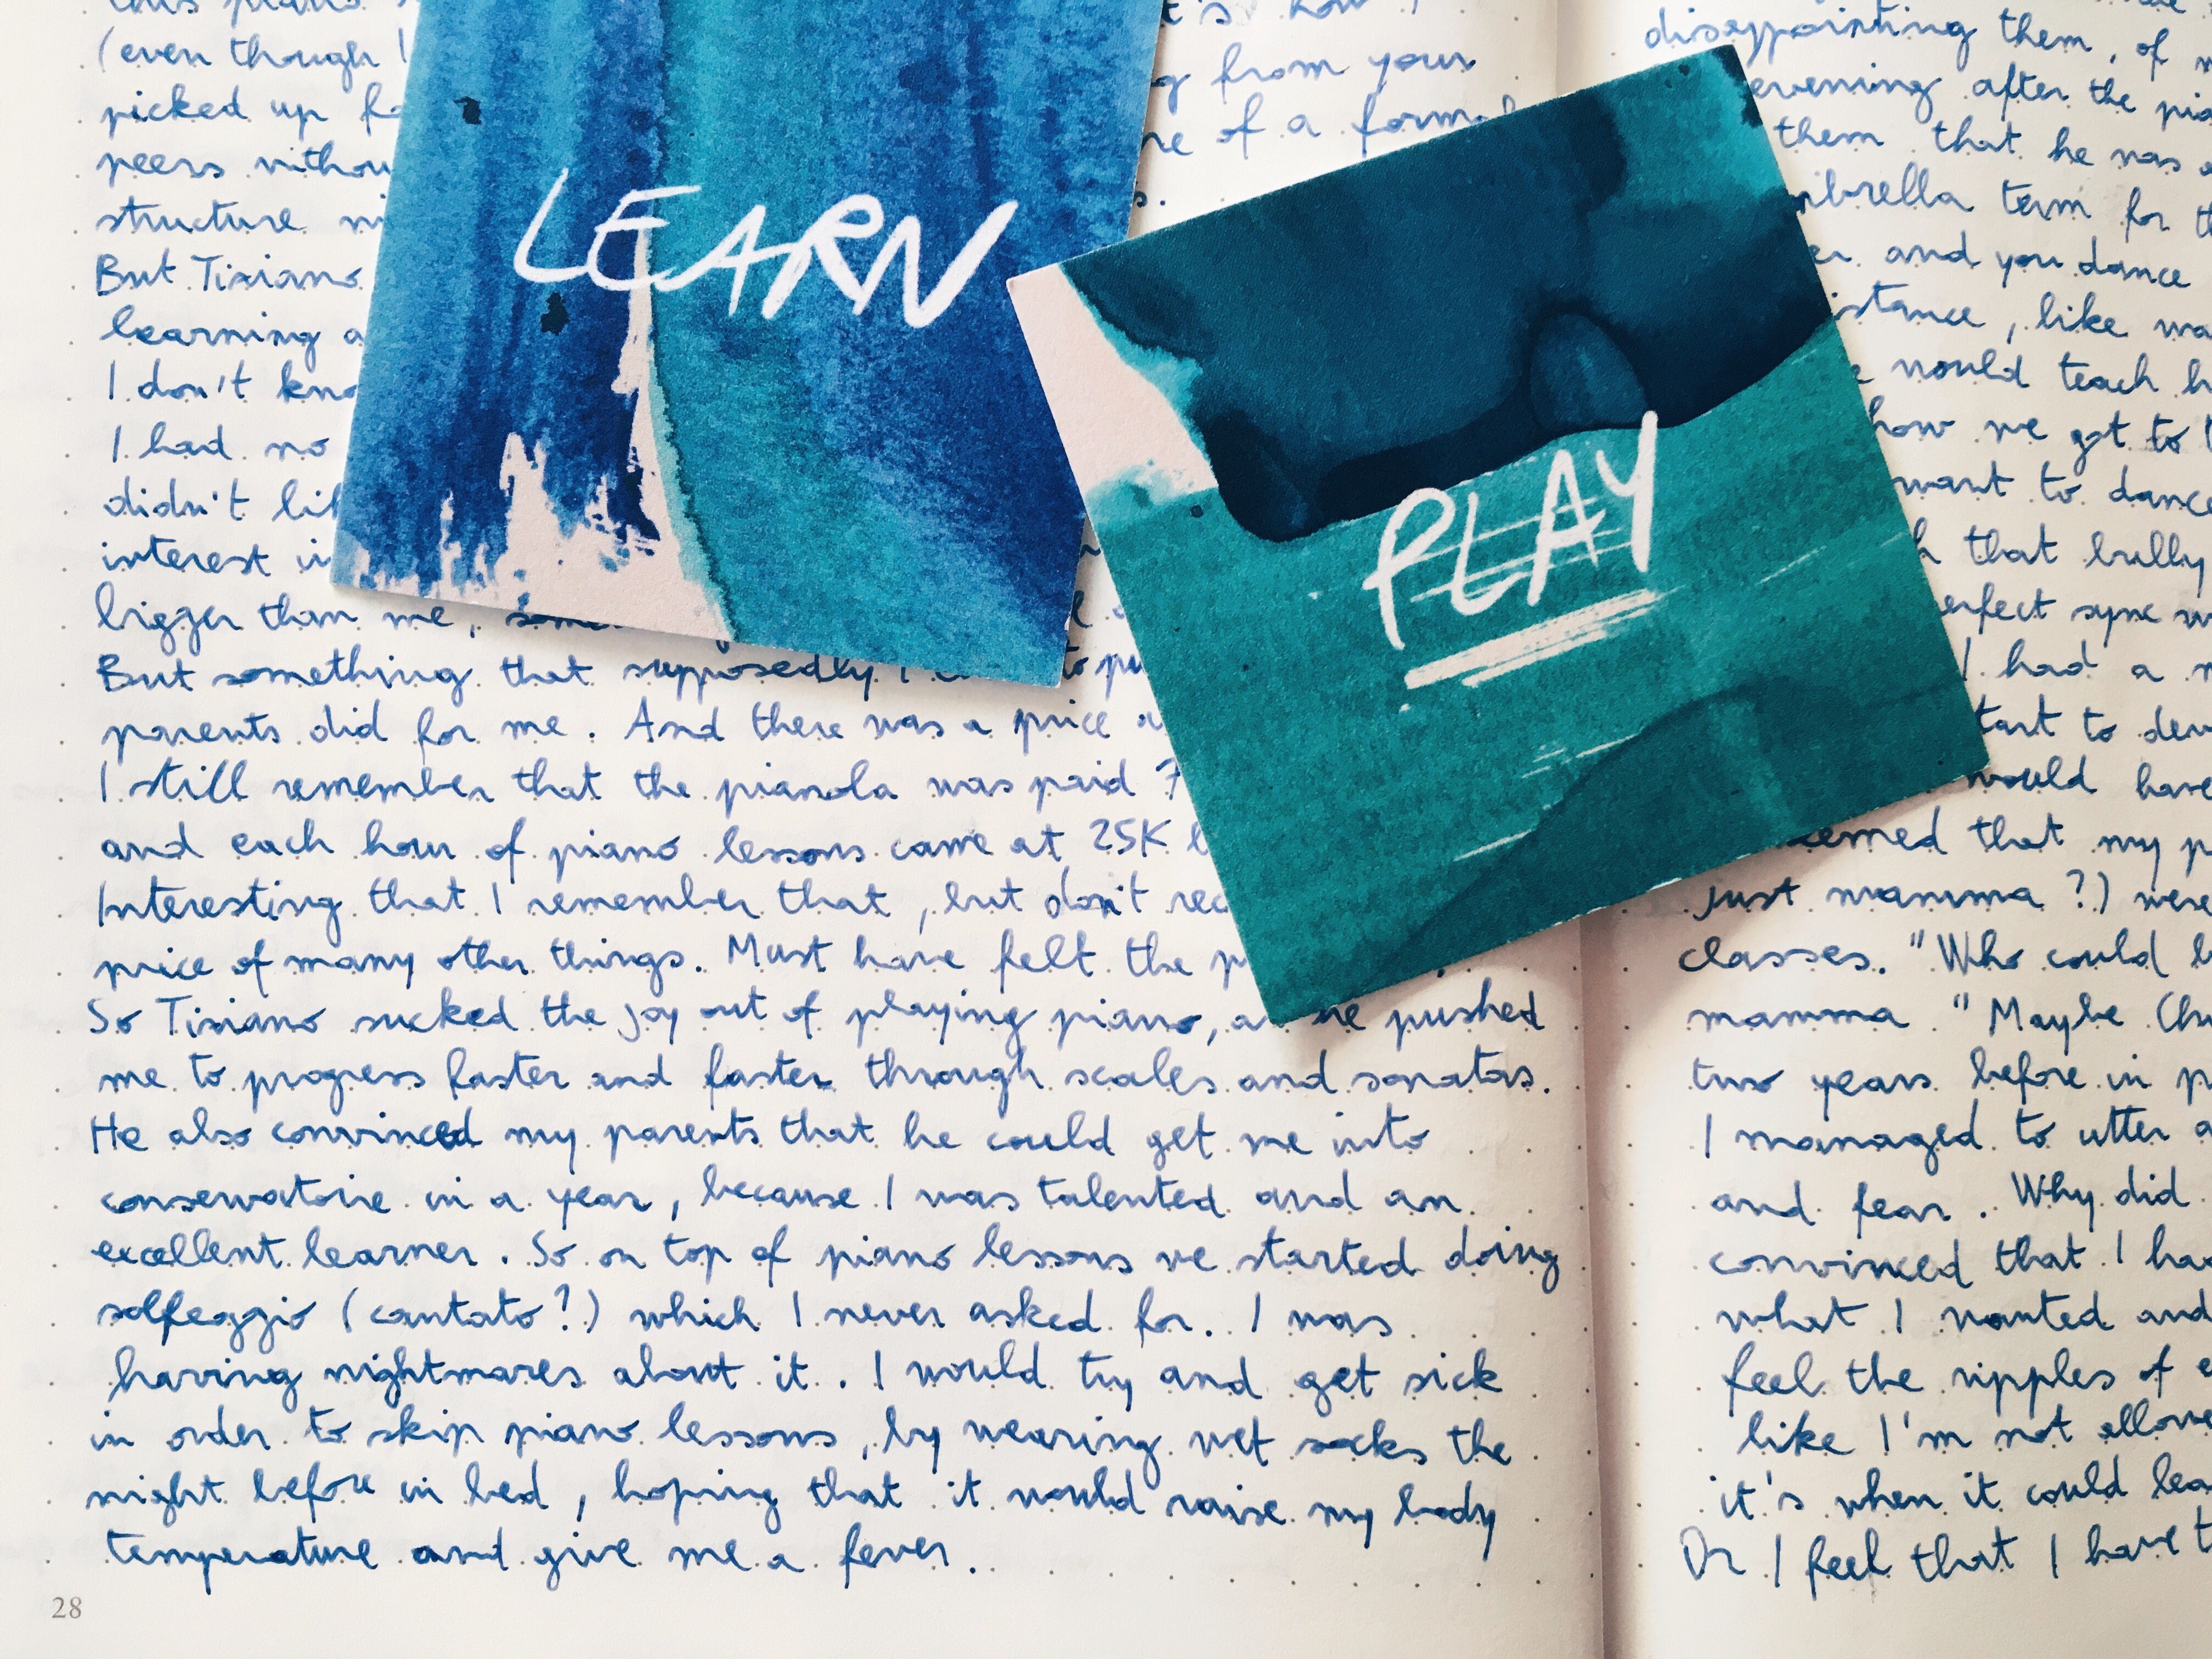 (even though I
picked up
peers
structure
But Tiziano
learning
I don't
I had no
didn't
interest
bigger than me,
But something that supposedly I
parents did for me. And there was a price
I still remember that the pianola was paid 7
and each hour of piano lessons came at 25K
Interesting that I remember that, but don't
price of many other things. Must have felt the
So Tiziano sucked the joy out of playing piano, pushed
me to progress faster and faster through scales and sonatas.
He also convinced my parents that he could get me into
conservatoire in a year, because I was talented and an
excellent learner. So on top of piano lessons we started doing
solfeggio (cantato?) which I never asked for. I was
having nightmares about it. I would try and get sick
in order to skip piano lessons, by wearing wet socks the
night before in bed, hoping that it would raise my body
temperature and give me a fever.
28
from your
of a
LEARN
PLAY
disappointing them, of
evening after the
them that he was
term for
and you dance
, like
would teach
how we got to
want to
that bully
sync
I had a
to
would have
that my
just mamma?) were
classes. "Who could
mamma. "Maybe
two years before in
I managed to utter
and fear. Why did
convinced that I
what I wanted and
feel the ripples of
like I'm not
it's when it could
Or I feel that I have